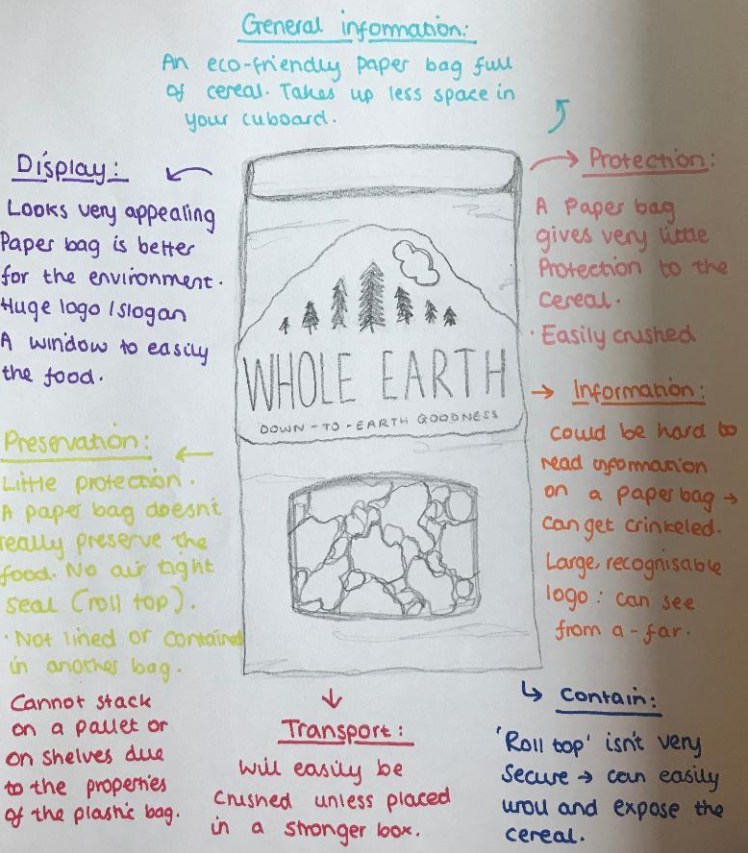 General information:
An eco-friendly paper bag full
of cereal. Takes up less space in
your cuboard.
Display:
Looks very appealing
Paper bag is better
for the environment.
Huge logo / slogan
A window to easily
the food.
Protection:
A paper bag
gives very little
Protection to the
cereal.
· Easily crushed
WHOLE EARTH
DOWN-TO-EARTH GOODNESS
Preservation:
Little protection.
A paper bag doesnt
really preserve the
food. No air tight
seal (roll top).
· Not lined or contained
in another bag.
Information:
could be hard to
read information
on a paper bag →
can get crinkeled.
Large, recognisable
logo: can see
from a-far.
Cannot stack
on a pallet or
on shelves due
to the properties
of the plastic bag.
Transport:
will easily be
crushed unless placed
in a stronger box.
Contain:
'Roll top' isn't very
secure → can easily
and expose the
cereal.